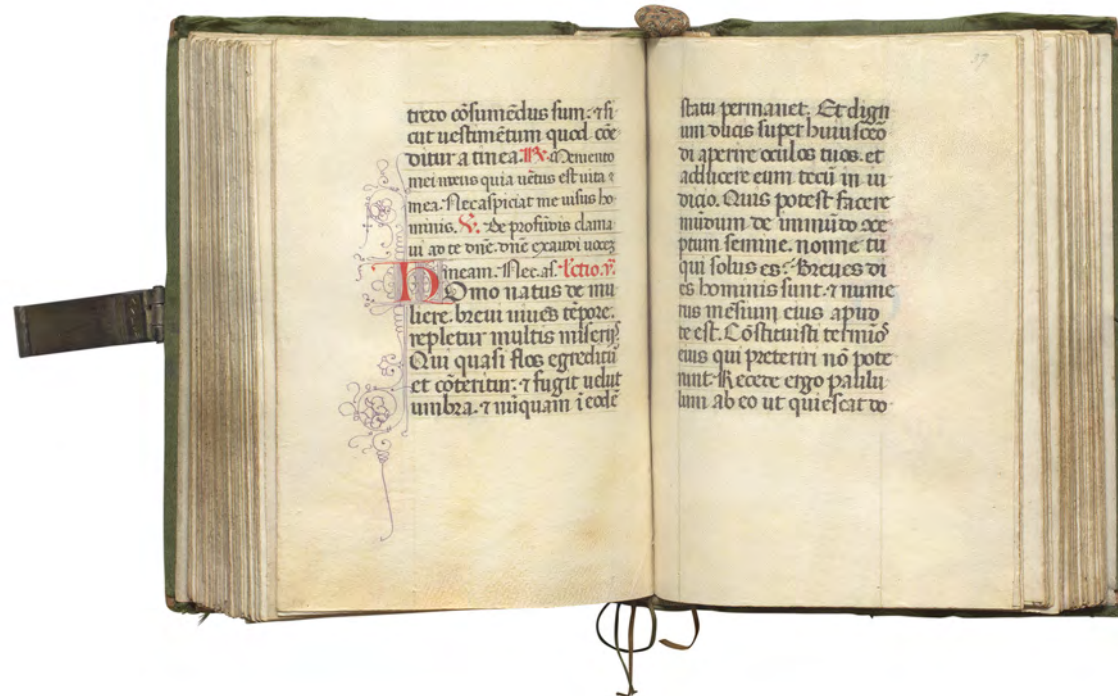 tredo cõsumẽdus sum: ⁊ si
cut uestimẽtum quod cõe
ditur a tinea. ℟. Memento
mei deus quia uẽtus est uita
mea. Nec aspiciat me uisus ho
minis. ℣. De profũdis clama
ui ad te dñe. dñe exaudi uocez
meam. Nec as. lectio. v.
Homo natus de mu
liere. breui uiuẽs tẽpore.
repletur multis miserijs.
Qui quasi flos egreditur
et cõteritur: ⁊ fugit uelut
umbra. ⁊ nũquam ĩ eodẽ
37
statu permanet. Et dign
um ducis super huiusceo
di aperire oculos tuos. et
adducere eum tecũ in iu
dicio. Quis potest facere
mũdum de immũdo cõce
ptum semine. nonne tu
qui solus es. Breues di
es hominis sunt. ⁊ nume
rus mẽsium eius apud
te est. Cõstituisti termiõs
eius qui preteriri nõ pote
runt. Recede ergo paulu
lum ab eo ut quiescat do